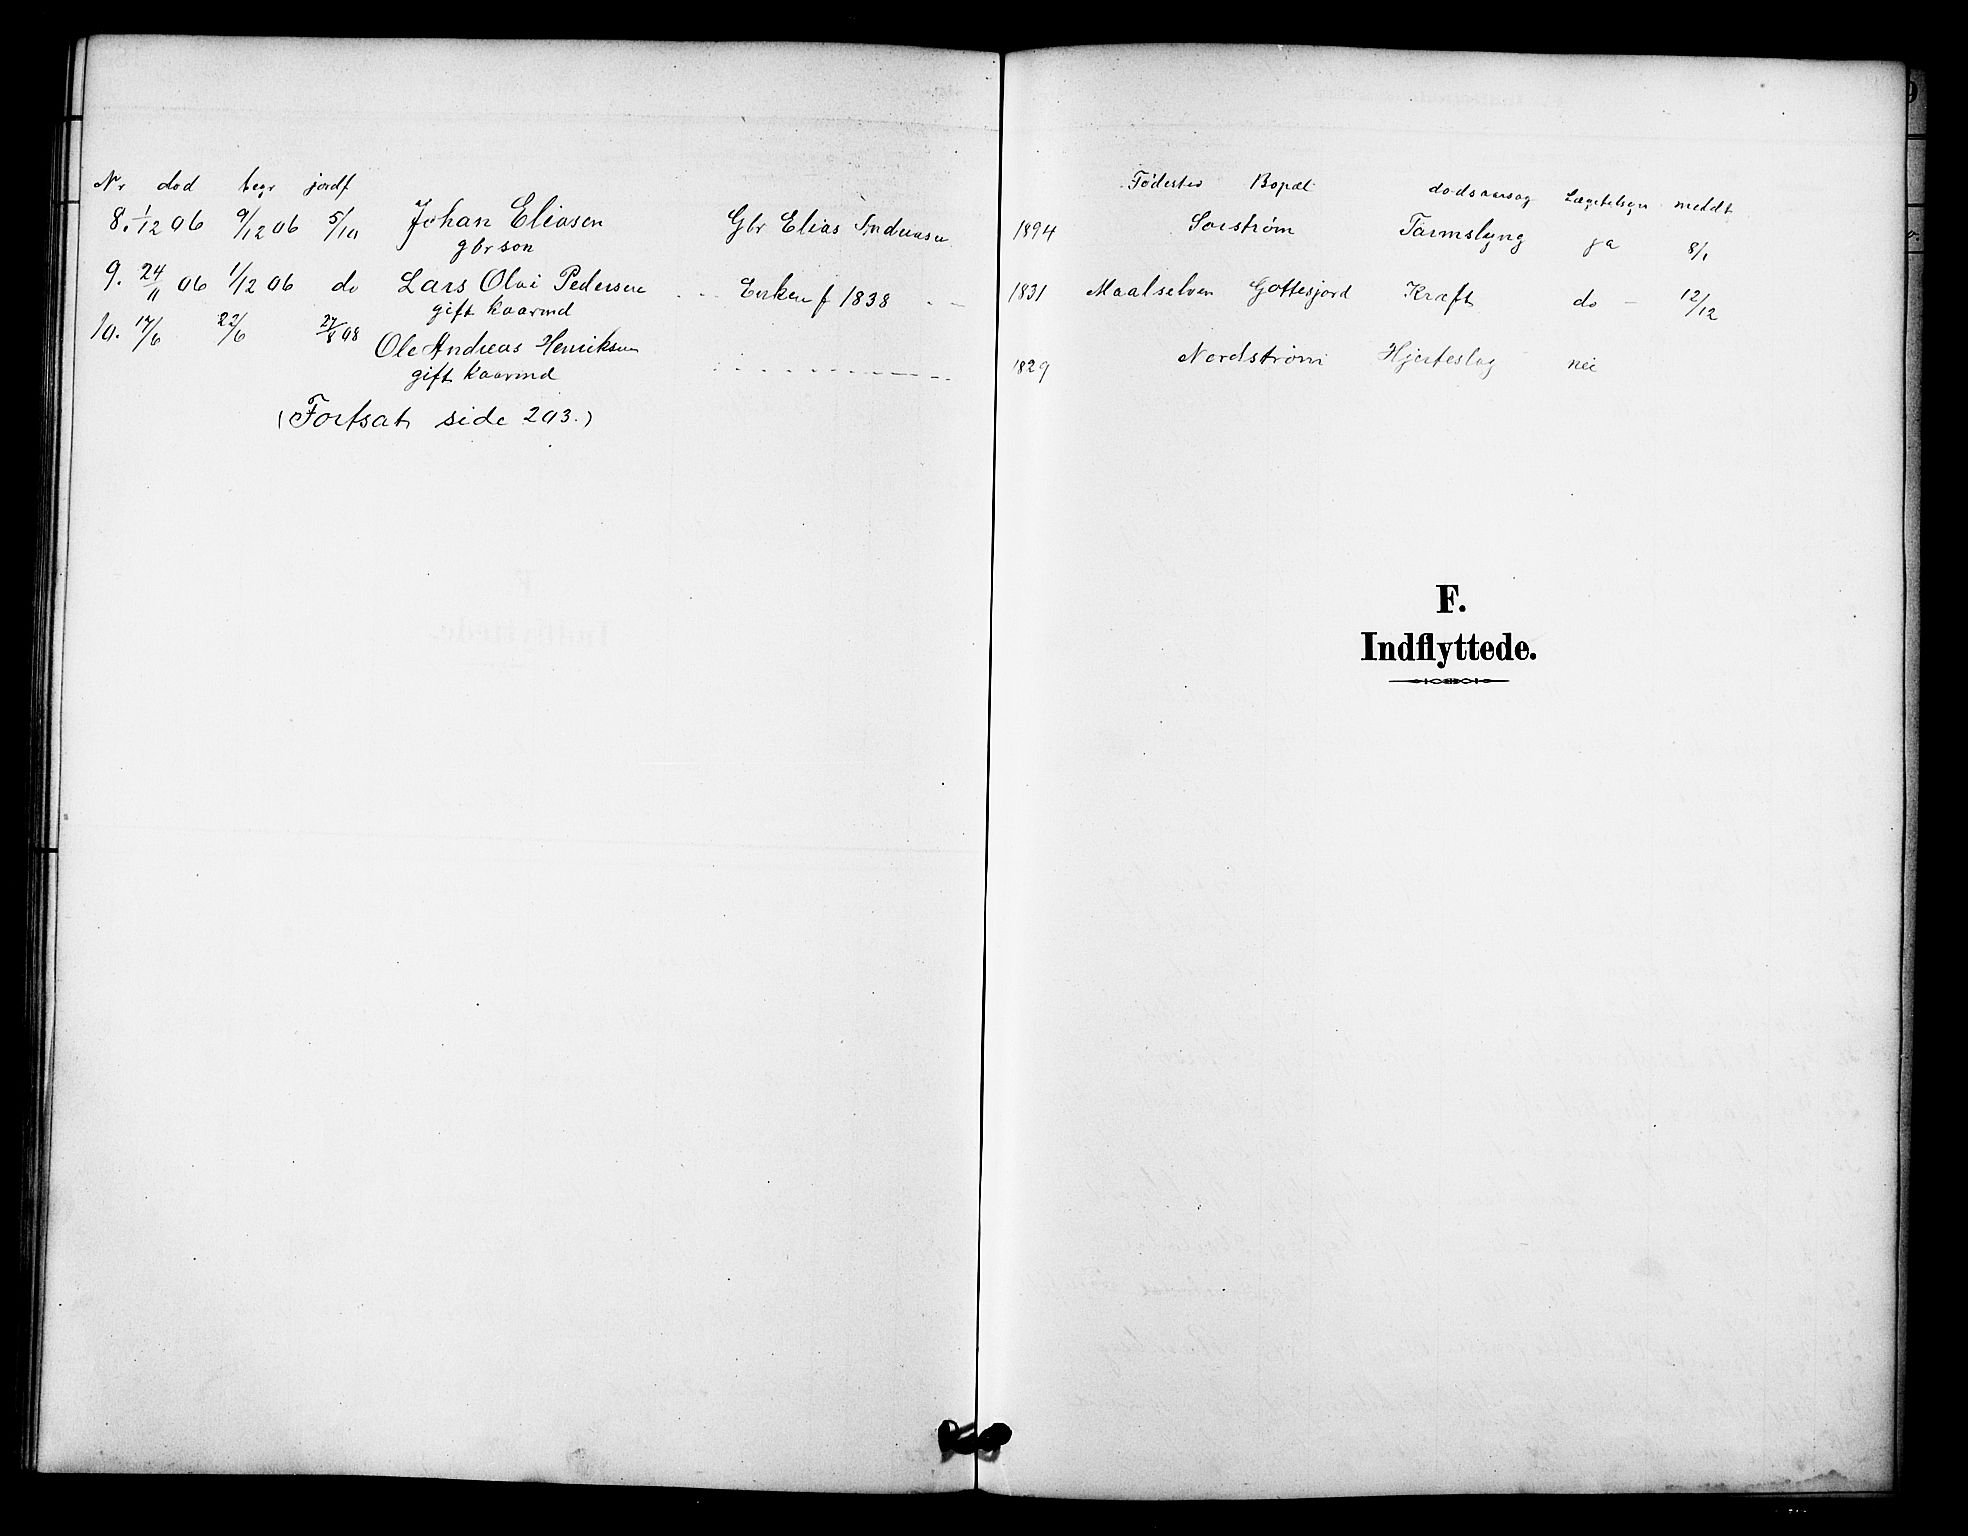 Nr død begr jordf Fødested Bopæl dødsaarsag Lægetilsyn meldt
8. 1/12 06 9/12 06 5/10 Johan Eliasen Gbr Elias Andreasen 1894 Sorstrøm Tarmslyng ja 8/1
gbrson
9. 24/11 06 1/12 06 do Lars Olai Pedersen Enken f 1838 1831 Maalselven Gottesjord Kræft do - 12/12
gift kaarmd
10. 17/6 22/6 27/8 08 Ole Andreas Henriksen 1829 Nordstrøm Hjerteslag nei
gift kaarmd
(Fortsat side 203.)
F.
Indflyttede.